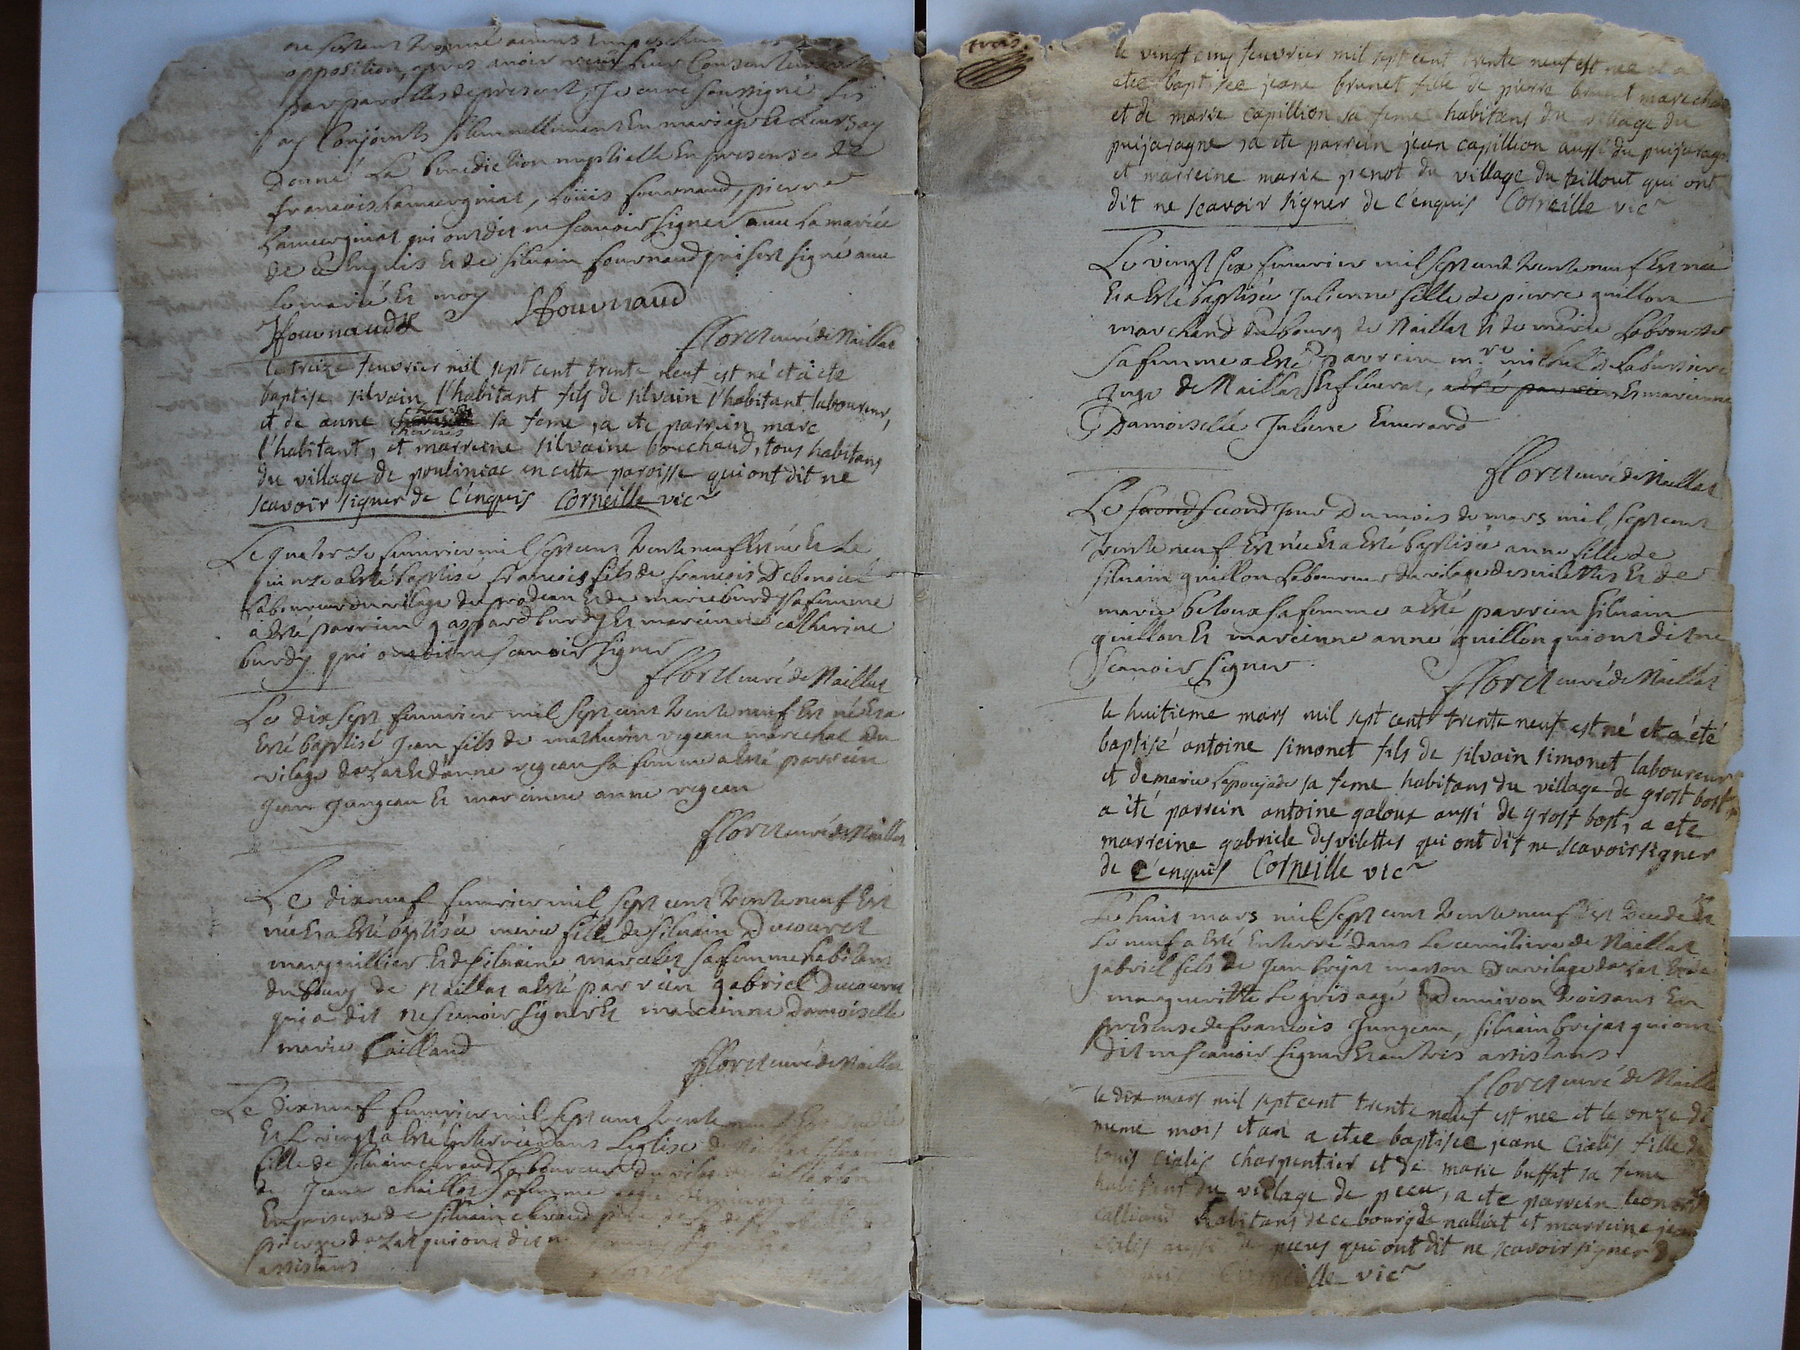 opposition, apres avoir receu leur consentement
par parolles de present, Je curé soussigné les
ay conjoints solemnellement En mariage et leurs ay
Donné La benediction nuptielle En presense de
francois Lamcergniat, Louis fournaud, pierre
Lamcergniat qui ont dit ne scavoir signer avec La mariée
de ce Enquis Et de silvain fournaud qui sest signé avec
Le marié Et moy
fournaud fournaud
floret curé de Naillat
le treize feuvrier mil sept cent trente neuf est né et a ete
baptise silvain l'habitant fils de silvain l'habitant laboureur,
et de anne sa feme, a ete parrein marc
l'habitant, et marreine silvaine bouchaud, tous habitans
du village de pouliniac en cette paroisse qui ont dit ne
scavoir signer de c'enquis Corneille vicr
Le quatorze feuvrier mil sept cent trente neuf Est né Et Le
quinze a Esté baptisé francois fils de francois Debenoiel
Laboureur du vilage de Et de marie burdy sa femme
a Esté parrein gaspard burdy Et mareinne catherine
burdy qui ont dit ne scavoir signer
floret curé de Naillat
Le dix sept feuvrier mil sept cent trente neuf Est né Et a
Esté baptisé Jean fils de mathurin rigeau marechal du
vilage de Lat Et d'anne rigeau sa femme a Esté parrein
Jean Jungeau Et mareinne anne rigeau
floret curé de Naillat
Le dixneuf feuvrier mil sept cent trente neuf Est
née Et a Esté baptisée marie fille de silvain Ducouret
marguillier Et de silvaine marcelet sa femme habitans
du bourg de Naillat a Esté parrein gabriel Ducouret
qui a dit ne scavoir signer Et mareinne Damoiselle
marie Cailland
floret curé de Naillat
Le dixneuf feuvrier mil sept cent trente neuf Est
Et Le vingt a Esté Enterrée dans L'eglise de Naillat
fille de silvain Laboureur du vilage
de Jeanne chaillot sa femme
En presense de silvain
pierre de Lat qui ont dit
assistans
trois
le vingt cinq feuvrier mil sept cent trente neuf est nee et a
etee baptisee jeane brunet fille de pierre brunet marechal
et de marie capillion sa feme habitans du village du
puijaragne a ete parrein jean capillion aussi du puijaragne
et marreine marie penot du village du teillout qui ont
dit ne scavoir signer de c'enquis Corneille vicr
Le vingt six feuvrier mil sept cent trente neuf Est née
Et a Esté baptisée Julienne fille de pierre quillon
marchand du bourg de Naillat Et de marie Labrousse
sa femme a Esté parrein mre michel De Labussiere
Juge de Naillat Et fleurat, a Esté parrein Et mareinne
Damoiselle Juliene Emerand
floret curé de Naillat
Le second second Jour du mois de mars mil sept cent
trente neuf Est née Et a Esté baptisée anne fille de
silvain quillon Laboureur du vilage des vilettes Et de
marie beloux sa femme a Esté parrein silvain
quillon Et mareinne anne quillon qui ont dit ne
scavoir signer
floret curé de Naillat
le huitieme mars mil sept cent trente neuf est né et a été
baptisé antoine simonet fils de silvain simonet laboureur
et de marie lapoujade sa feme habitans du village de grost bost,
a été parrein antoine galoux aussi de grost bost, a ete
marreine gabriele desvilettes qui ont dit ne scavoir signer
de c'enquis Corneille vicr
Le huit mars mil sept cent trente neuf Est decedé Et
Le neuf a Esté Enterré dans Le cemitiere de Naillat
gabriel fils de Jean brijat masson du vilage de Lat Et de
marguerite Legris aagé D'environ trois ans En
presense de francois Jungeau, silvain brijat qui ont
dit ne scavoir signer Et autres assistans
floret curé de Naillat
le dix mars mil sept cent trente neuf est nee et le onze de
meme mois et an a etee baptisee jeane Cialis fille de
louis cialis charpentier et de marie buffet sa feme
habitans du village de peeu, a ete parrein leonard
calliaud habitans de ce bourg de nalliat et marreine jeane
cialis aussi de peeux qui ont dit ne scavoir signer de
Corneille vicr